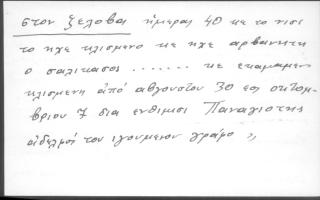 στον ξεχοβα ημερας 40 κε το νισι
το ηχε κλισμενο κε ηχε αρβανητη
ο σαλικασος ....... κε εκαμαμεν
κλισμενη από αβγουστου 30 εος οκτομ-
βριου 7 δια ενθιμισι Παναγιοτης
αδελφοί του ιγουμενου γράφο »